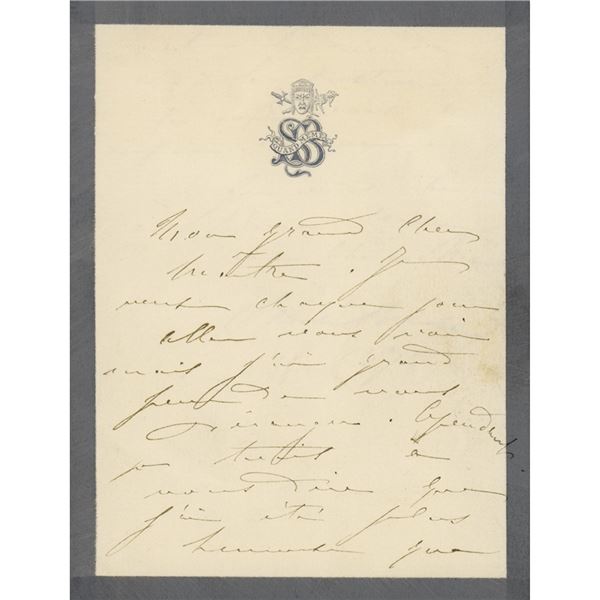 QUAND MEME
SB
Mon grand cher
Maître. Je
veux chaque jour
aller vous voir
mais j'ai grand
peur de vous
déranger. Cependant
je tiens à
vous dire que
j'ai été plus
heureuse que